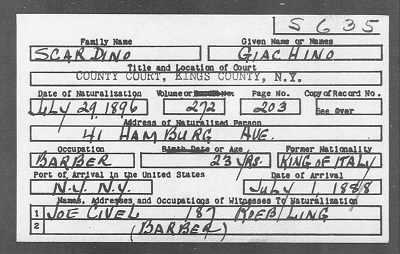 S 635
Family Name Given Name or Names
SCARDINO GIACHINO
Title and Location of Court
COUNTY COURT, KINGS COUNTY, N.Y.
Date of Naturalization Volume or No. Page No. Copy of Record No.
JULY 29, 1896 272 203 See Over
Address of Naturalized Person
41 HAMBURG AVE.
Occupation Birth Date or Age Former Nationality
BARBER 23 YRS. KING OF ITALY
Port of Arrival in the United States Date of Arrival
N.Y. N.Y. JULY 1, 1888
Names, Addresses and Occupations of Witnesses To Naturalization
1 JOE CIVEL 187 ROEBLING
2 (BARBER)